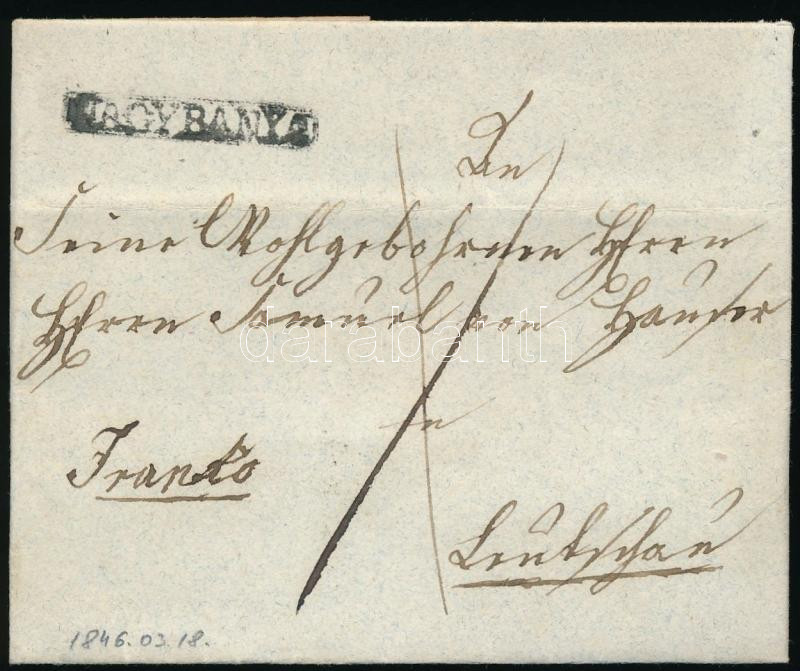 NAGYBANYA
An
Seine Wohlgebohrnen Herrn
Herrn Samuel von Hauser
in
Franko
Leutschau
darabanth
1846.03.18.